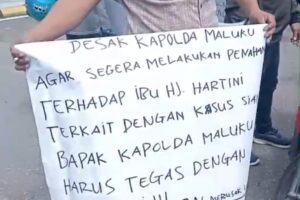 DESAK KAPOLDA MALUKU
AGAR SEGERA MELAKUKAN PENAHAN
TERHADAP IBU HJ. HARTINI
TERKAIT DENGAN KASUS SIA
BAPAK KAPOLDA MALUKU
HARUS TEGAS DENGAN
INI !!!
MERUSAK